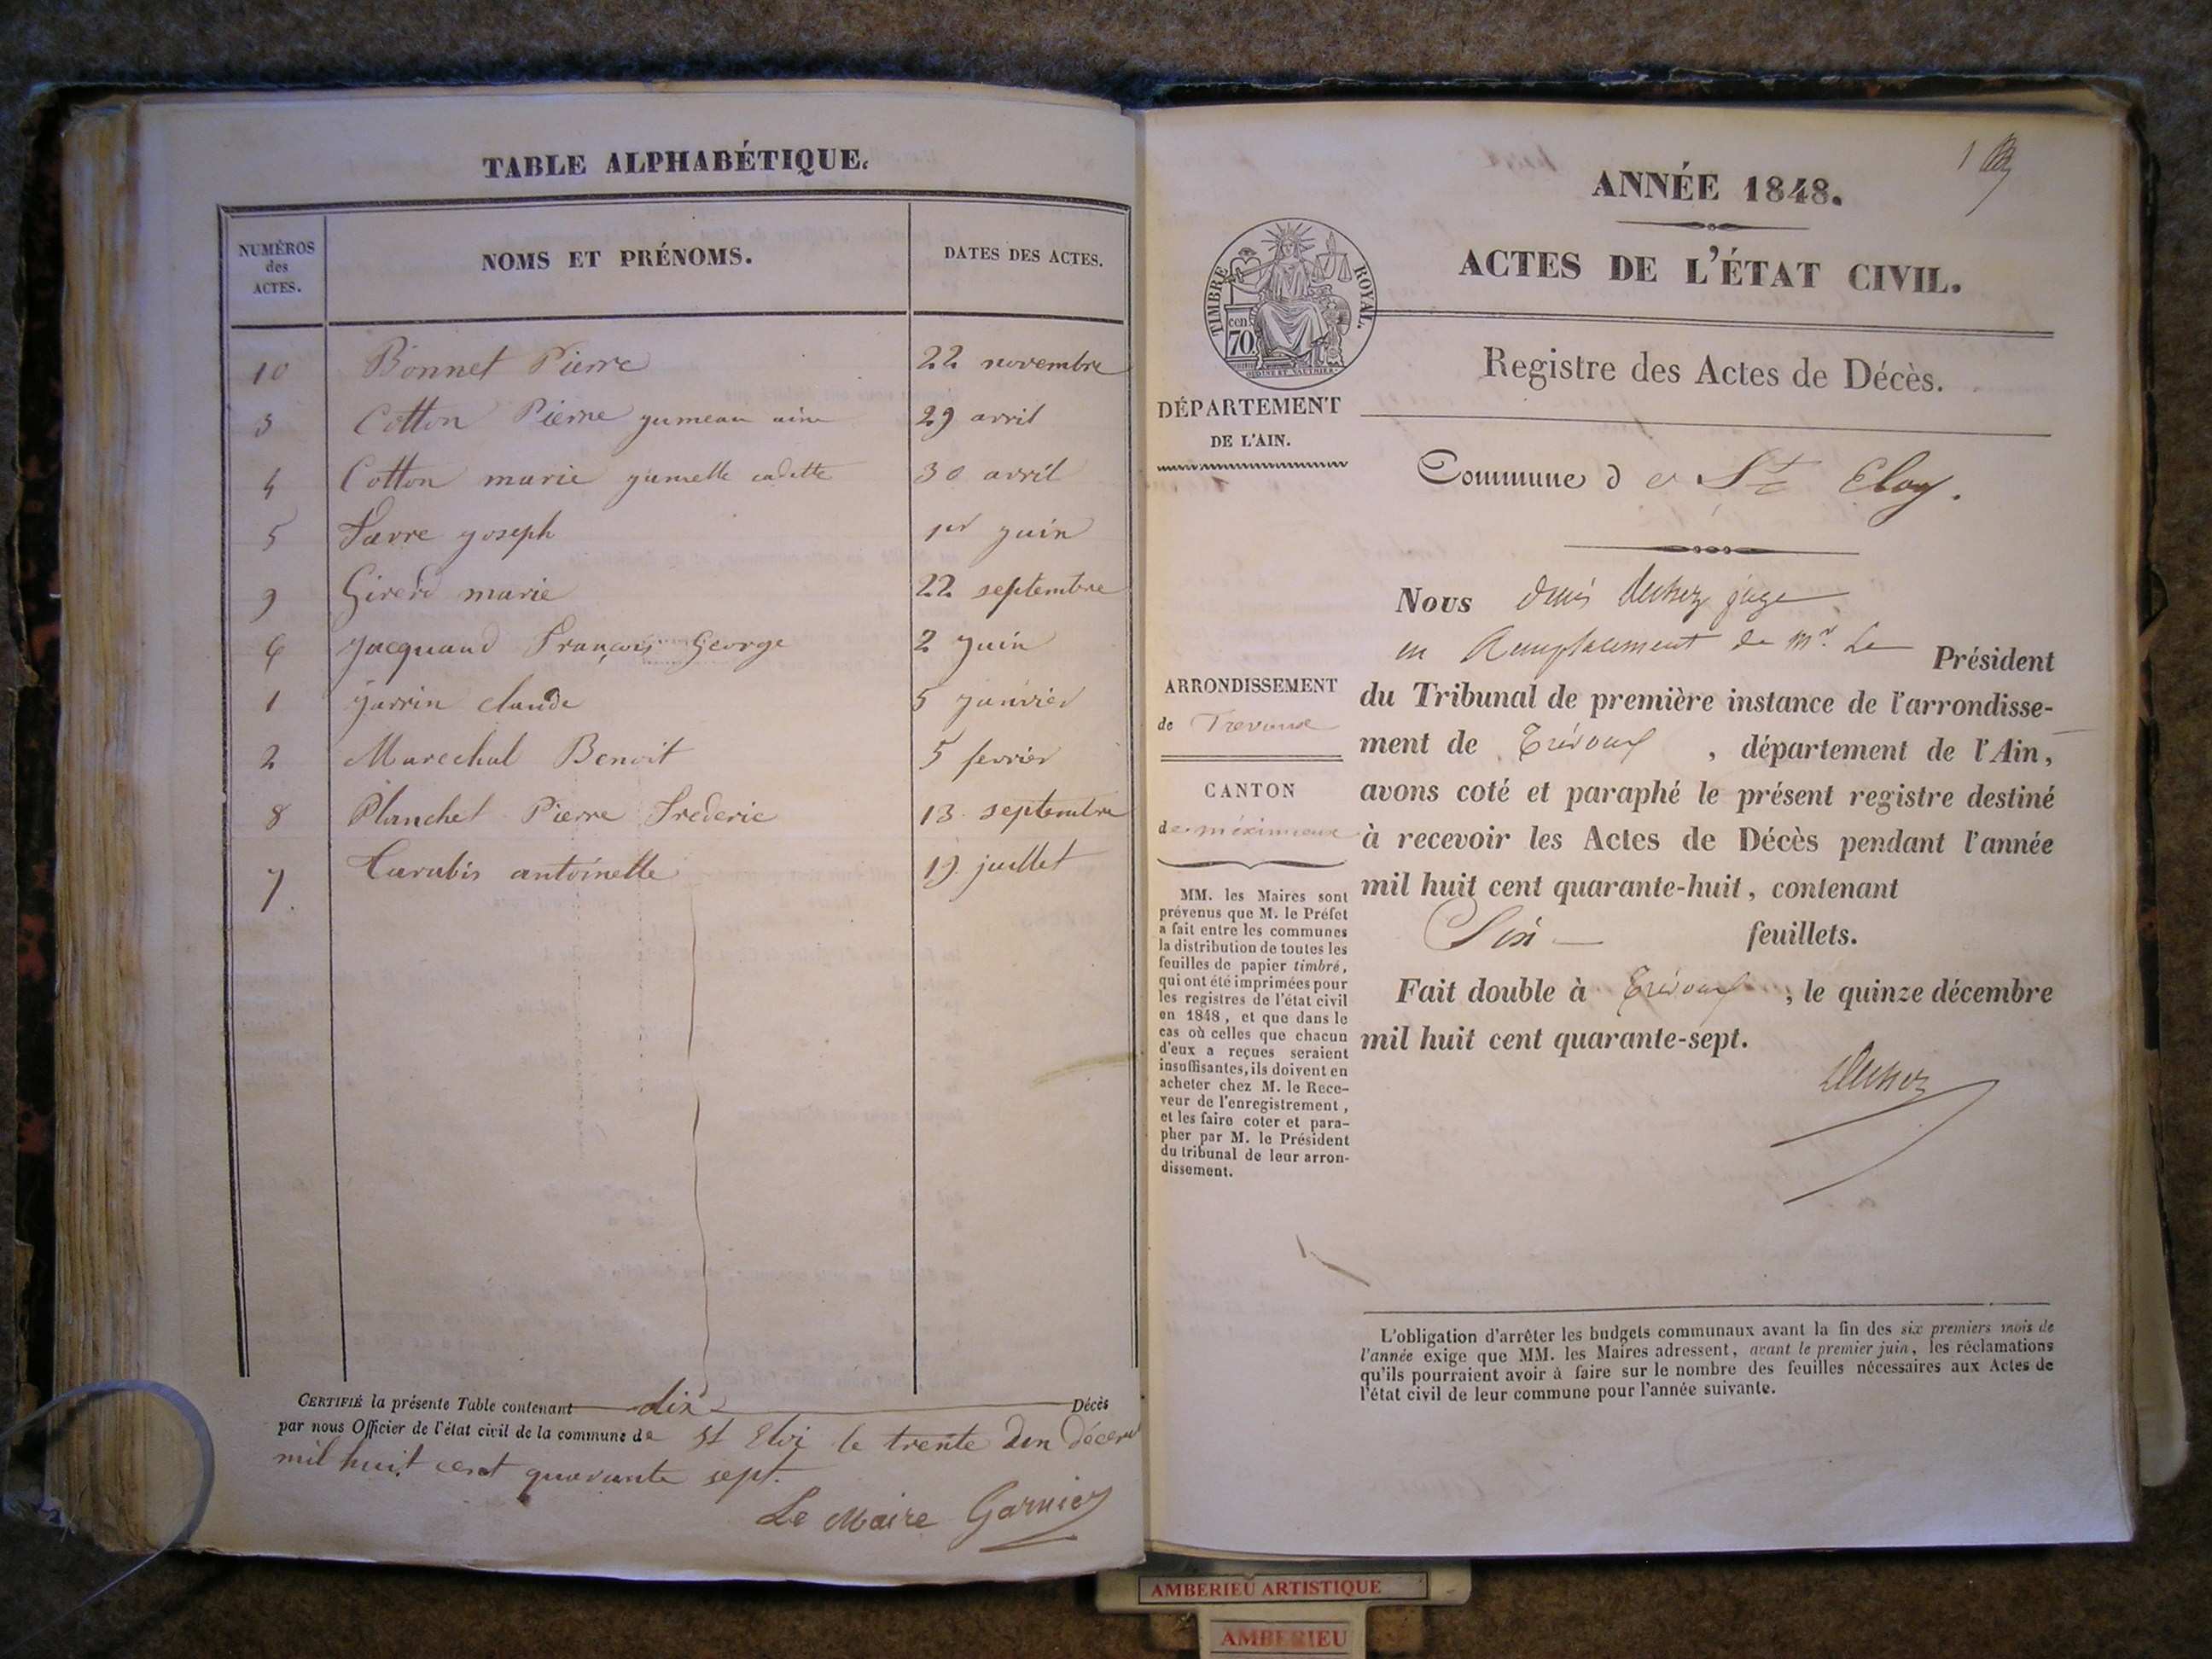 TABLE ALPHABÉTIQUE.
NUMÉROS
des
ACTES.
NOMS ET PRÉNOMS.
DATES DES ACTES.
10 Bonnet Pierre 22 novembre
3 Cotton Pierre jumeau aine 29 avril
4 Cotton marie jumelle cadette 30 avril
5 Favre joseph 1er juin
9 Girerd marie 22 septembre
6 jacquand François George 2 juin
1 jarrin claude 5 janvier
2 Marechal Benoit 5 fevrier
8 Planchet Pierre Frederic 13 septembre
7. antoinette 19 juillet
CERTIFIÉ la présente Table contenant dix Décès
par nous Officier de l'état civil de la commune de St Eloi le trente décem
mil huit cent quarante sept.
Le Maire Garnier
1
ANNÉE 1848.
ACTES DE L'ÉTAT CIVIL.
TIMBRE ROYAL.
cen.
70
Registre des Actes de Décès.
DÉPARTEMENT
DE L'AIN.
Commune de St Eloy.
Nous juge
en Remplacement de Mr. Le Président
du Tribunal de première instance de l'arrondisse-
ment de Trévoux, département de l'Ain,
avons coté et paraphé le présent registre destiné
à recevoir les Actes de Décès pendant l'année
mil huit cent quarante-huit, contenant
Six feuillets.
Fait double à Trévoux, le quinze décembre
mil huit cent quarante-sept.
ARRONDISSEMENT
de Trevoux
CANTON
de meximieux
MM. les Maires sont
prévenus que M. le Préfet
a fait entre les communes
la distribution de toutes les
feuilles de papier timbré,
qui ont été imprimées pour
les registres de l'état civil
en 1848, et que dans le
cas où celles que chacun
d'eux a reçues seraient
insuffisantes, ils doivent en
acheter chez M. le Rece-
veur de l'enregistrement,
et les faire coter et para-
pher par M. le Président
du tribunal de leur arron-
dissement.
L'obligation d'arrêter les budgets communaux avant la fin des six premiers mois de
l'année exige que MM. les Maires adressent, avant le premier juin, les réclamations
qu'ils pourraient avoir à faire sur le nombre des feuilles nécessaires aux Actes de
l'état civil de leur commune pour l'année suivante.
AMBERIEU ARTISTIQUE
AMBERIEU